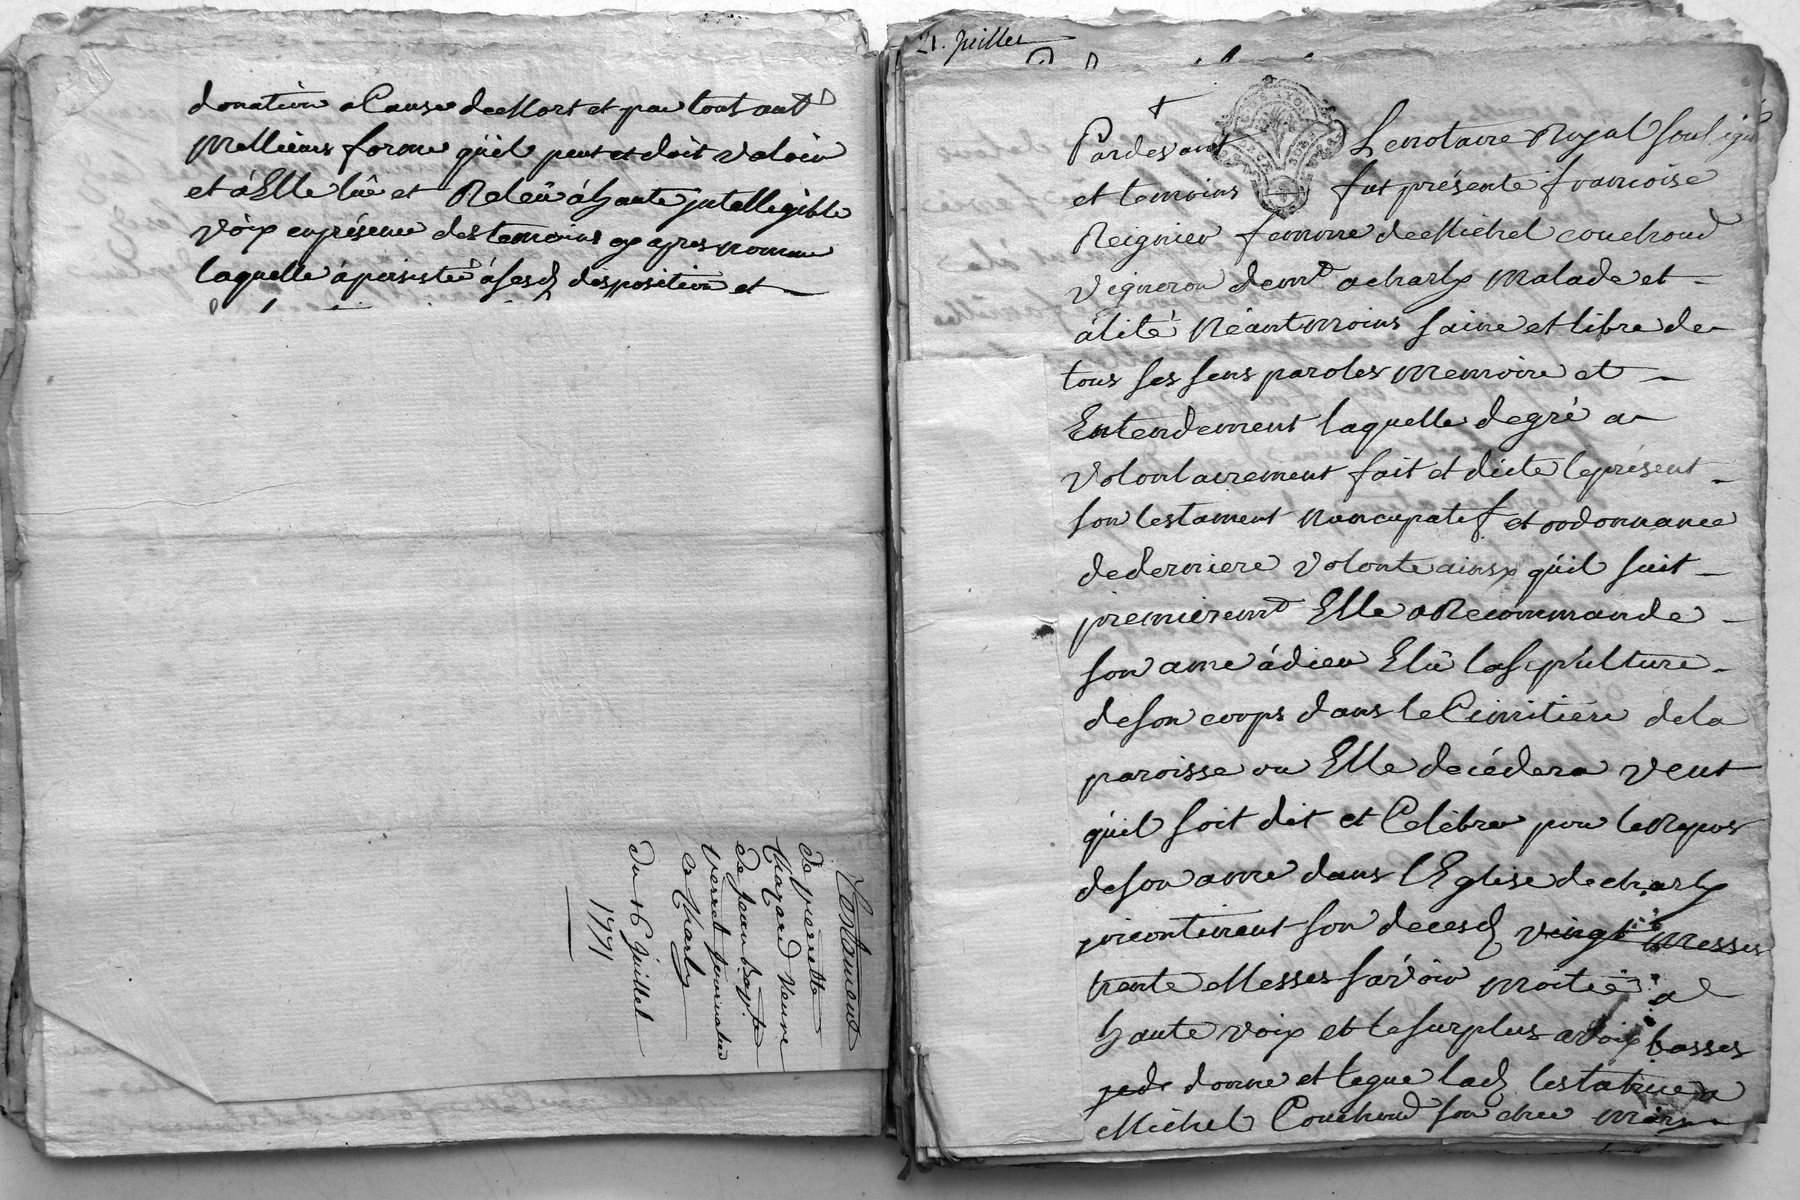 donation a Cause de Mort et par tout autᵉ
Mellieure forme qu'il peut et doit valoir
et à Elle lüe et Releüe à haute jntellegible
Voix en présence des temoins cy apres nommé
laquelle à persisté à ses d. disposition et
Testament
de pierrette
Chazard veuve
de Jean baptᵉ
verret
de Charly
du 16 Juillet
1771
21. Juillet
Pardevant Le notaire Royal soussigné
et temoins fut présente francoise
Reignier femme de Michel couchoud
Vigneron demᵗ a charly malade et
àlité Néantmoins saine et libre de
tous ses sens paroles memoire et
Entendement laquelle de gré a
Volontairement fait et dicté le présent
son testament Nuncupatif et ordonnance
de derniere Volonté ainsy qu'il suit
premieremᵗ Elle a Recommandé
son ame à dieu Elü la sepulture
de son corps dans le Cimitiére de la
paroisse ou Elle decédera veut
qu'il soit dit et Celébré pour le Repos
de son ame dans l'Eglise de charly
jncontinent son deces d. vingt Messes
trente Messes savoir moitié a
haute voix et le surplus a voix basses
donne et legue la d. testatrice a
Michel Couchoud son cher mary